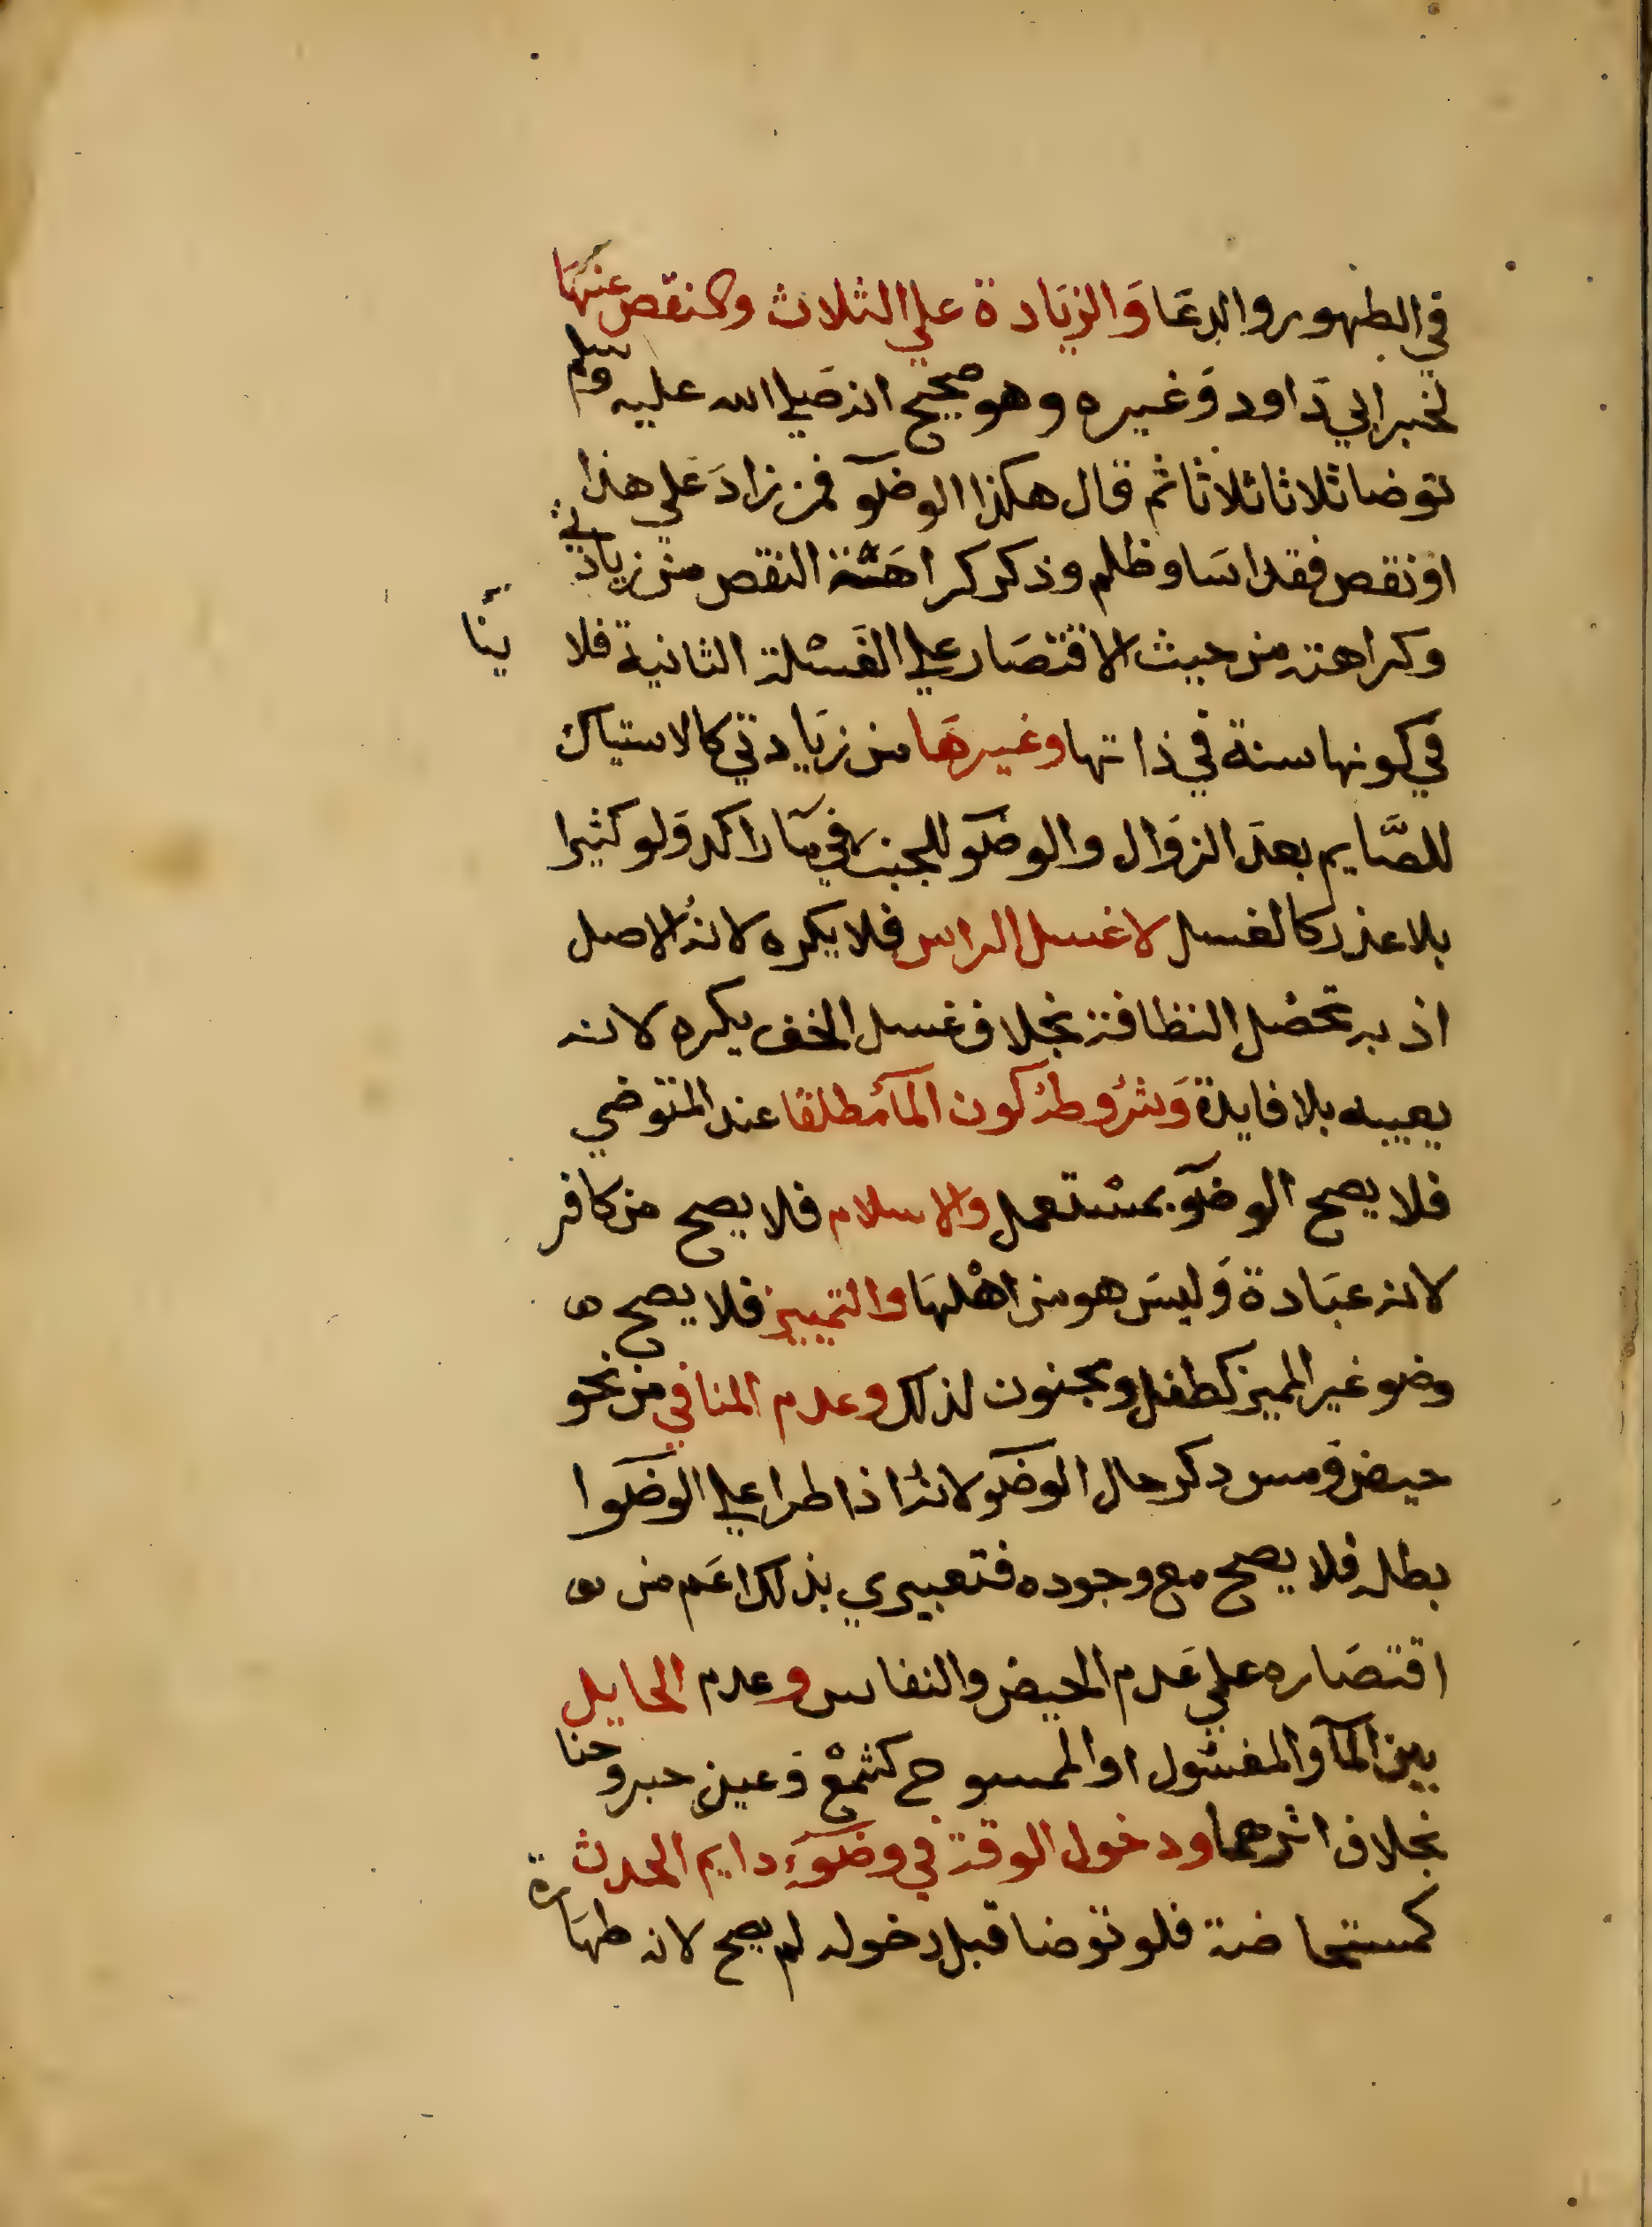 في الطهور والدعا والزيادة علي الثلاث والنقص عنها
لخبر ابي داود وغيره وهو صحيح انه صلي الله عليه وسلم
توضا ثلاثا ثلاثا ثم قال هكذا الوضو فمن زاد علي هذا
او نقص فقد اسا وظلم وذكر كراهة النقص من زيادتي
وكراهته من حيث الاقتصار علي الغسلة الثانية فلا ينا
في كونها سنة في ذاتها وغيرها من زيادتي كالاستياك
للصايم بعد الزوال والوضو للجنب في ما راكد ولو كثيرا
بلا عذر كالغسل لا غسل الراس فلا يكره لانه الاصل
اذ به تحصل النظافة بخلاف غسل الخف يكره لانه
يعيبه بلا فايدة وشروطه كون المآ مطلقا عند المتوضي
فلا يصح الوضو بمستعمل والاسلام فلا يصح من كافر
لانه عبادة وليس هو من اهلها والتمييز فلا يصح
وضو غير المميز كطفل ومجنون لذلك وعدم المنافي من نحو
حيض ومس ذكر حال الوضو لانه اذا طرا علي الوضوا
بطله فلا يصح مع وجوده فتعبيري بذلك اعم من
اقتصاره علي عدم الحيض والنفاس وعدم الحايل
بين المآ والمغسول او الممسوح كشمع وعين حبر وحنا
بخلاف اثرهما ودخول الوقت في وضوء دايم الحدث
كمستحاضة فلو توضا قبل دخوله لم يصح لانه طهارة